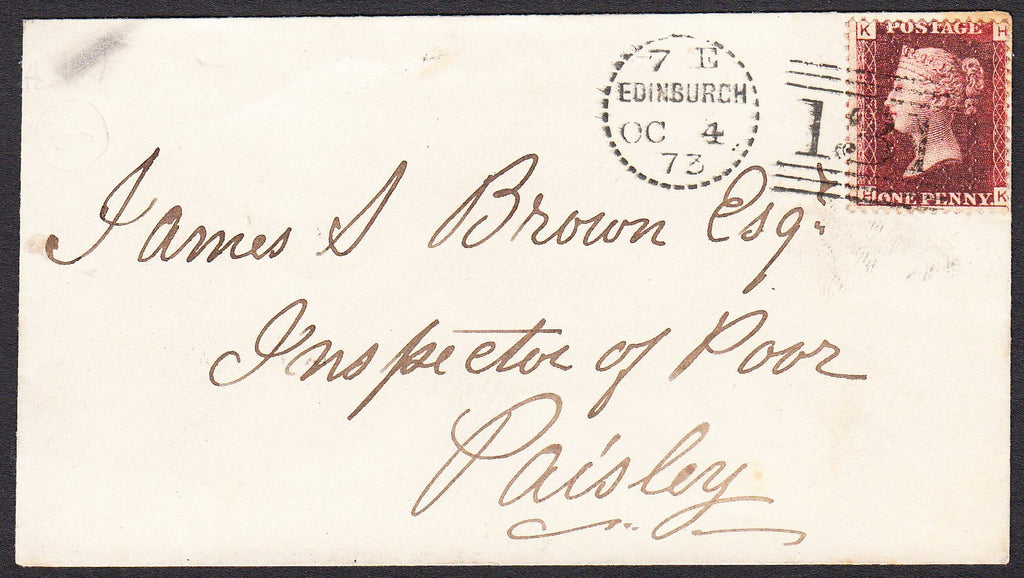 K POSTAGE H
7 E
EDINBURGH
OC 4
73
131
H ONE PENNY K
James S Brown Esqr
Inspector of Poor
Paisley